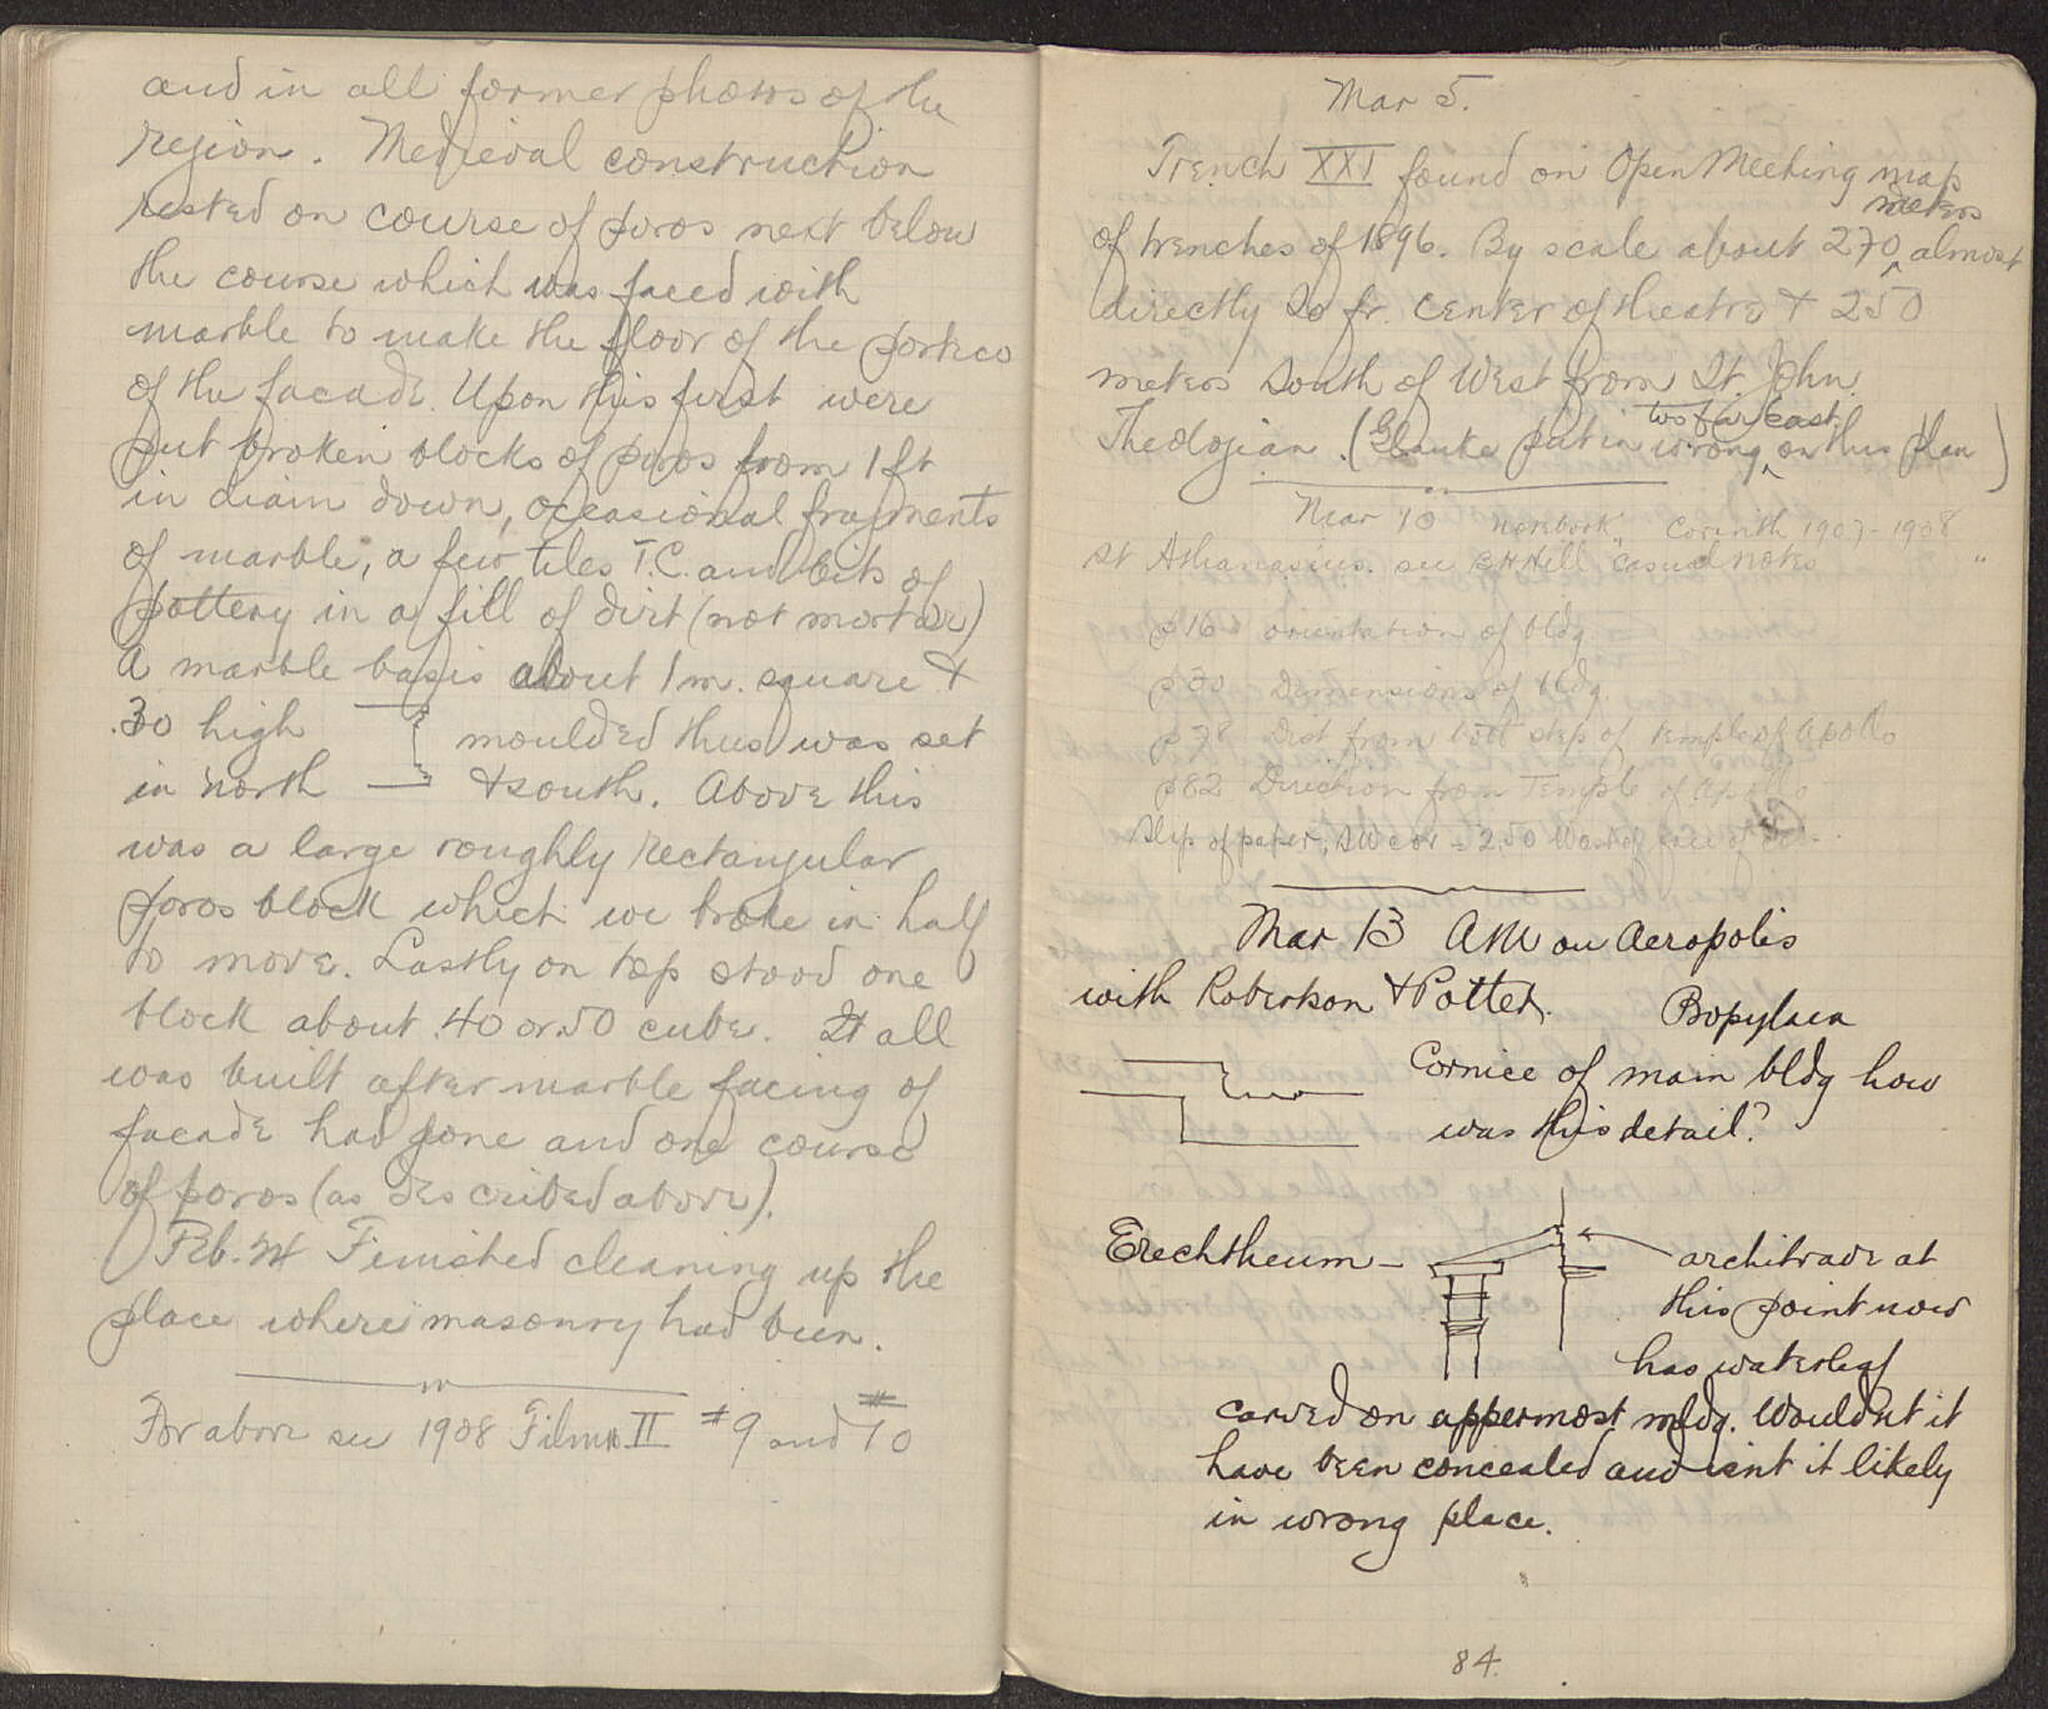 and in all former photos of the
region. Medieval construction
rested on course of poros next below
the course which was faced with
marble to make the floor of the portico
of the facade. Upon this first were
put broken blocks of poros from 1 ft
in diam down, occasional fragments
of marble, a few tiles T.C. and bits of
pottery in a fill of dirt (not mortar)
A marble basis about 1 m. square +
.30 high moulded thus was set
in north + south. Above this
was a large roughly rectangular
poros block which we broke in half
to move. Lastly on top stood one
block about .40 or .50 cube. It all
was built after marble facing of
facade had gone and one course
of poros (as described above).
Feb. 24 Finished cleaning up the
place where masonry had been.
For above see 1908 Film II #9 and #10
Mar 5.
Trench XXI found on Open Meeting map
of trenches of 1896. By scale about 270 meters almost
directly So fr. center of theatre + 250
meters south of West from St. John
Theologian. (Glauke put in wrong too far east on this plan)
Mar 10 notebook, Corinth 1907-1908
St Athanasius. see BH Hill casual notes "
p 16 orientation of bldg
p 50 Dimensions of bldg.
p 78 Dist from bott step of temple of Apollo
p 82 Direction from Temple of Apollo
Slip of paper, SW cor = 2.50 West of face of
Mar 13 AM on Acropolis
with Robertson + Potter.
Propylaea
Cornice of main bldg how
was this detail?
Erechtheum - architrave at
this point now
has waterleaf
carved on uppermost mldg. Wouldnt it
have been concealed and isnt it likely
in wrong place.
84.